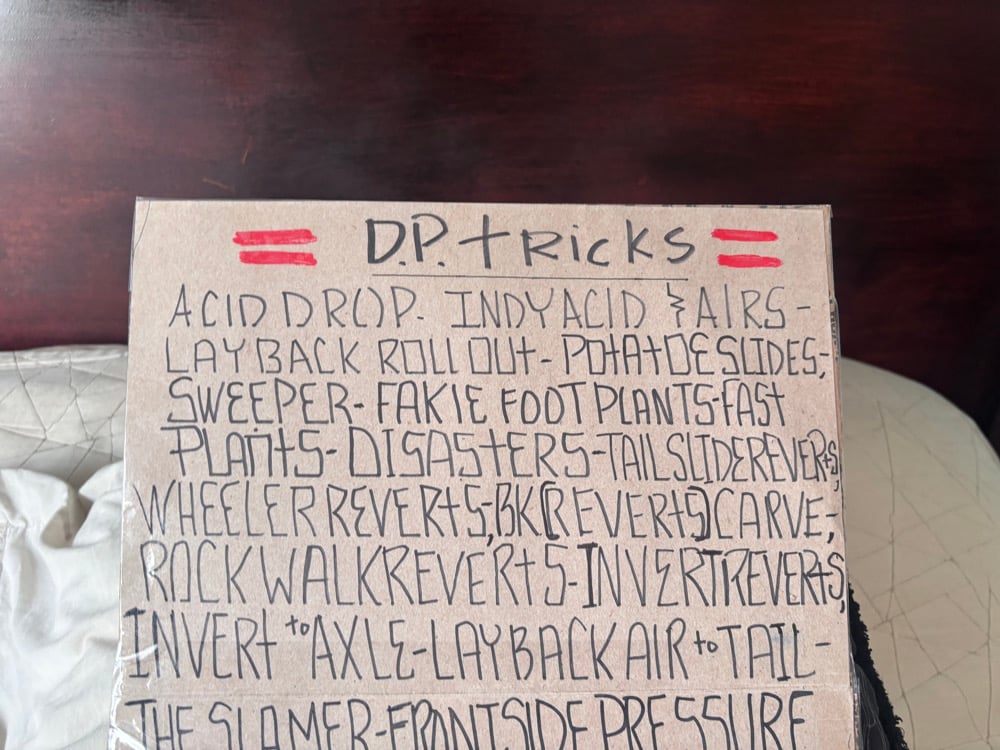 = D.P. tRicks =
ACID DROP. INDY ACID & AIRS -
LAY BACK ROLL OUT - POtAtOE SLIDES,
SWEEPER - FAKIE FOOT PLANTS - FAST
PLANtS - DISAStERS - TAIL SLIDE REVERtS,
WHEELER REVERtS, BK [REVERtS] CARVE,
ROCK WALK REVERtS - INVERT REVERtS,
INVERt to AXLE - LAY BACK AIR to TAIL -
THE SLAMER - FRONTSIDE PRESSURE